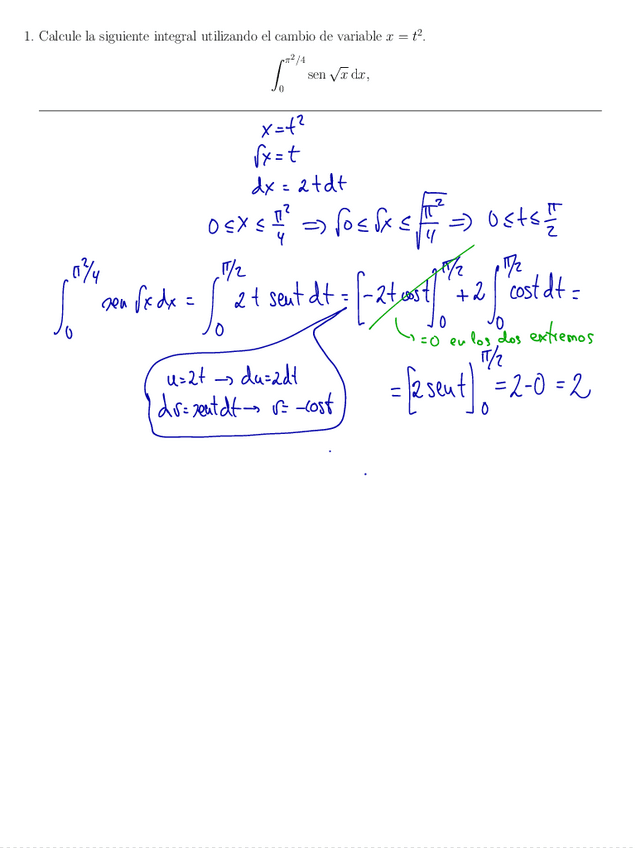 1. Calcule la siguiente integral utilizando el cambio de variable x = t².
∫₀^{π²/4} sen √x dx,
x=t²
√x = t
dx = 2tdt
0≤x≤π²/4 ⇒ √0≤√x≤√(π²/4) ⇒ 0≤t≤π/2
∫₀^{π²/4} sen √x dx = ∫₀^{π/2} 2t sent dt = [-2t cost]₀^{π/2} + 2∫₀^{π/2} cost dt =
↳ =0 en los dos extremos
u=2t → du=2dt
dv=sentdt → v= -cost
= [2sent]₀^{π/2} = 2-0 = 2